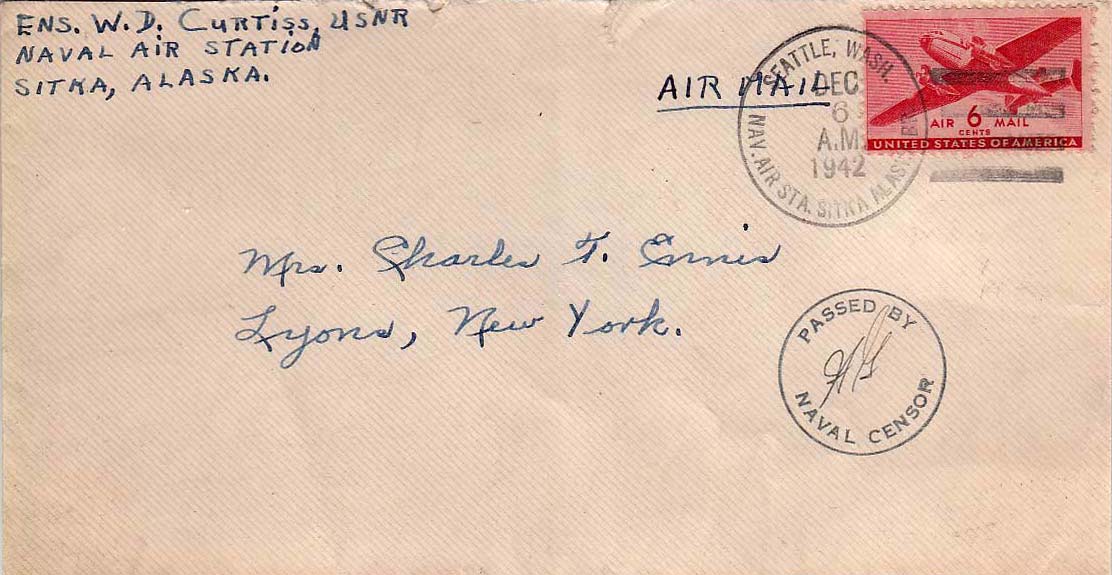 ENS. W. D. CURTISS, USNR
NAVAL AIR STATION
SITKA, ALASKA.
AIR MAIL
SEATTLE, WASH.
DEC
6
A.M.
1942
NAV. AIR STA. SITKA ALASKA BR.
AIR 6 MAIL
CENTS
UNITED STATES OF AMERICA
Mrs. Charles T. Ennis
Lyons, New York.
PASSED BY
NAVAL CENSOR